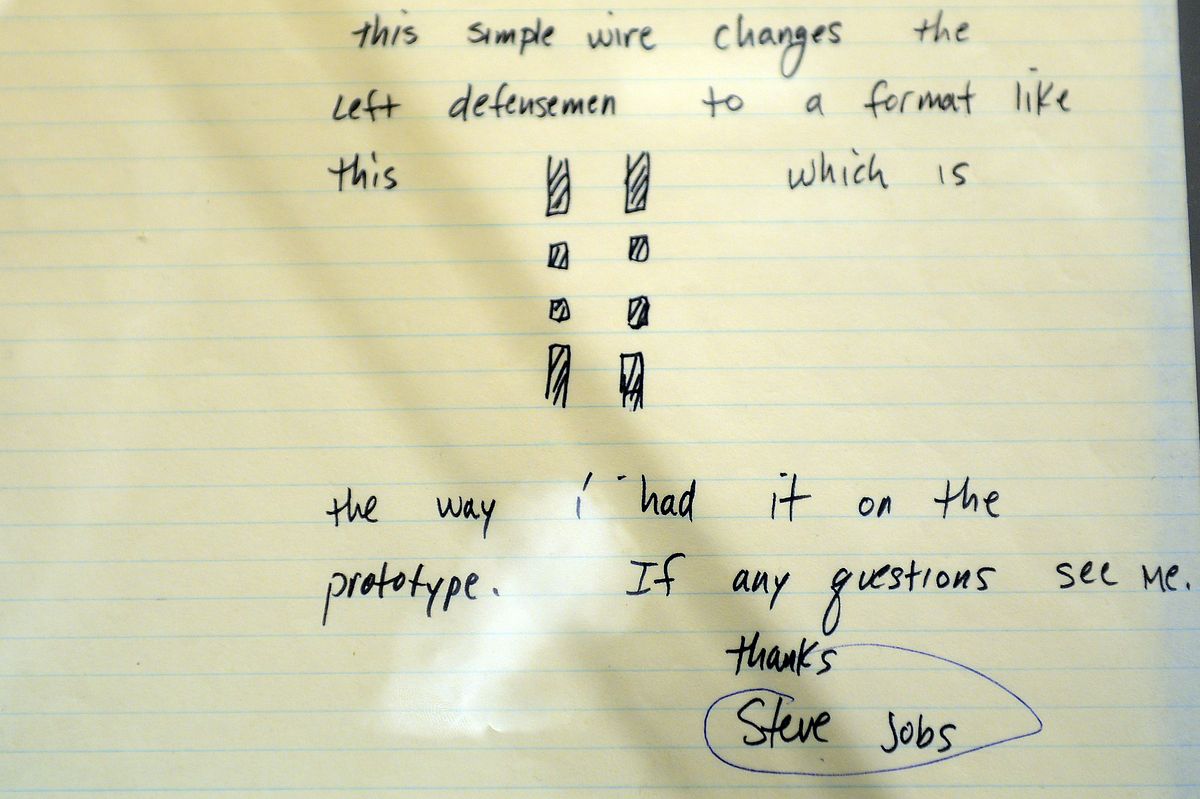 this simple wire changes the
left defensemen to a format like
this which is
the way i had it on the
prototype. If any questions see me.
thanks
Steve Jobs